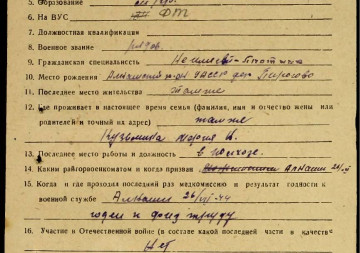 5. Образование
6. На ВУС
7. Должностная квалификация
8. Военное звание рядов.
9. Гражданская специальность
10. Место рождения Алнашский р-он УАССР дер.
11. Последнее место жительства там же
12. Где проживает в настоящее время семья (фамилия, имя и отчество жены или
родителей и точный адрес) там же
Кузьмина Мария И.
13. Последнее место работы и должность в колхозе.
14. Каким райгорвоенкоматом и когда призван Алнаши
15. Когда и где проходил последний раз медкомиссию и результат годности к
военной службе Алнаши 26/VI-44
годен к физ. труду
16. Участие в Отечественной войне (в составе какой последней части и качестве
Нет